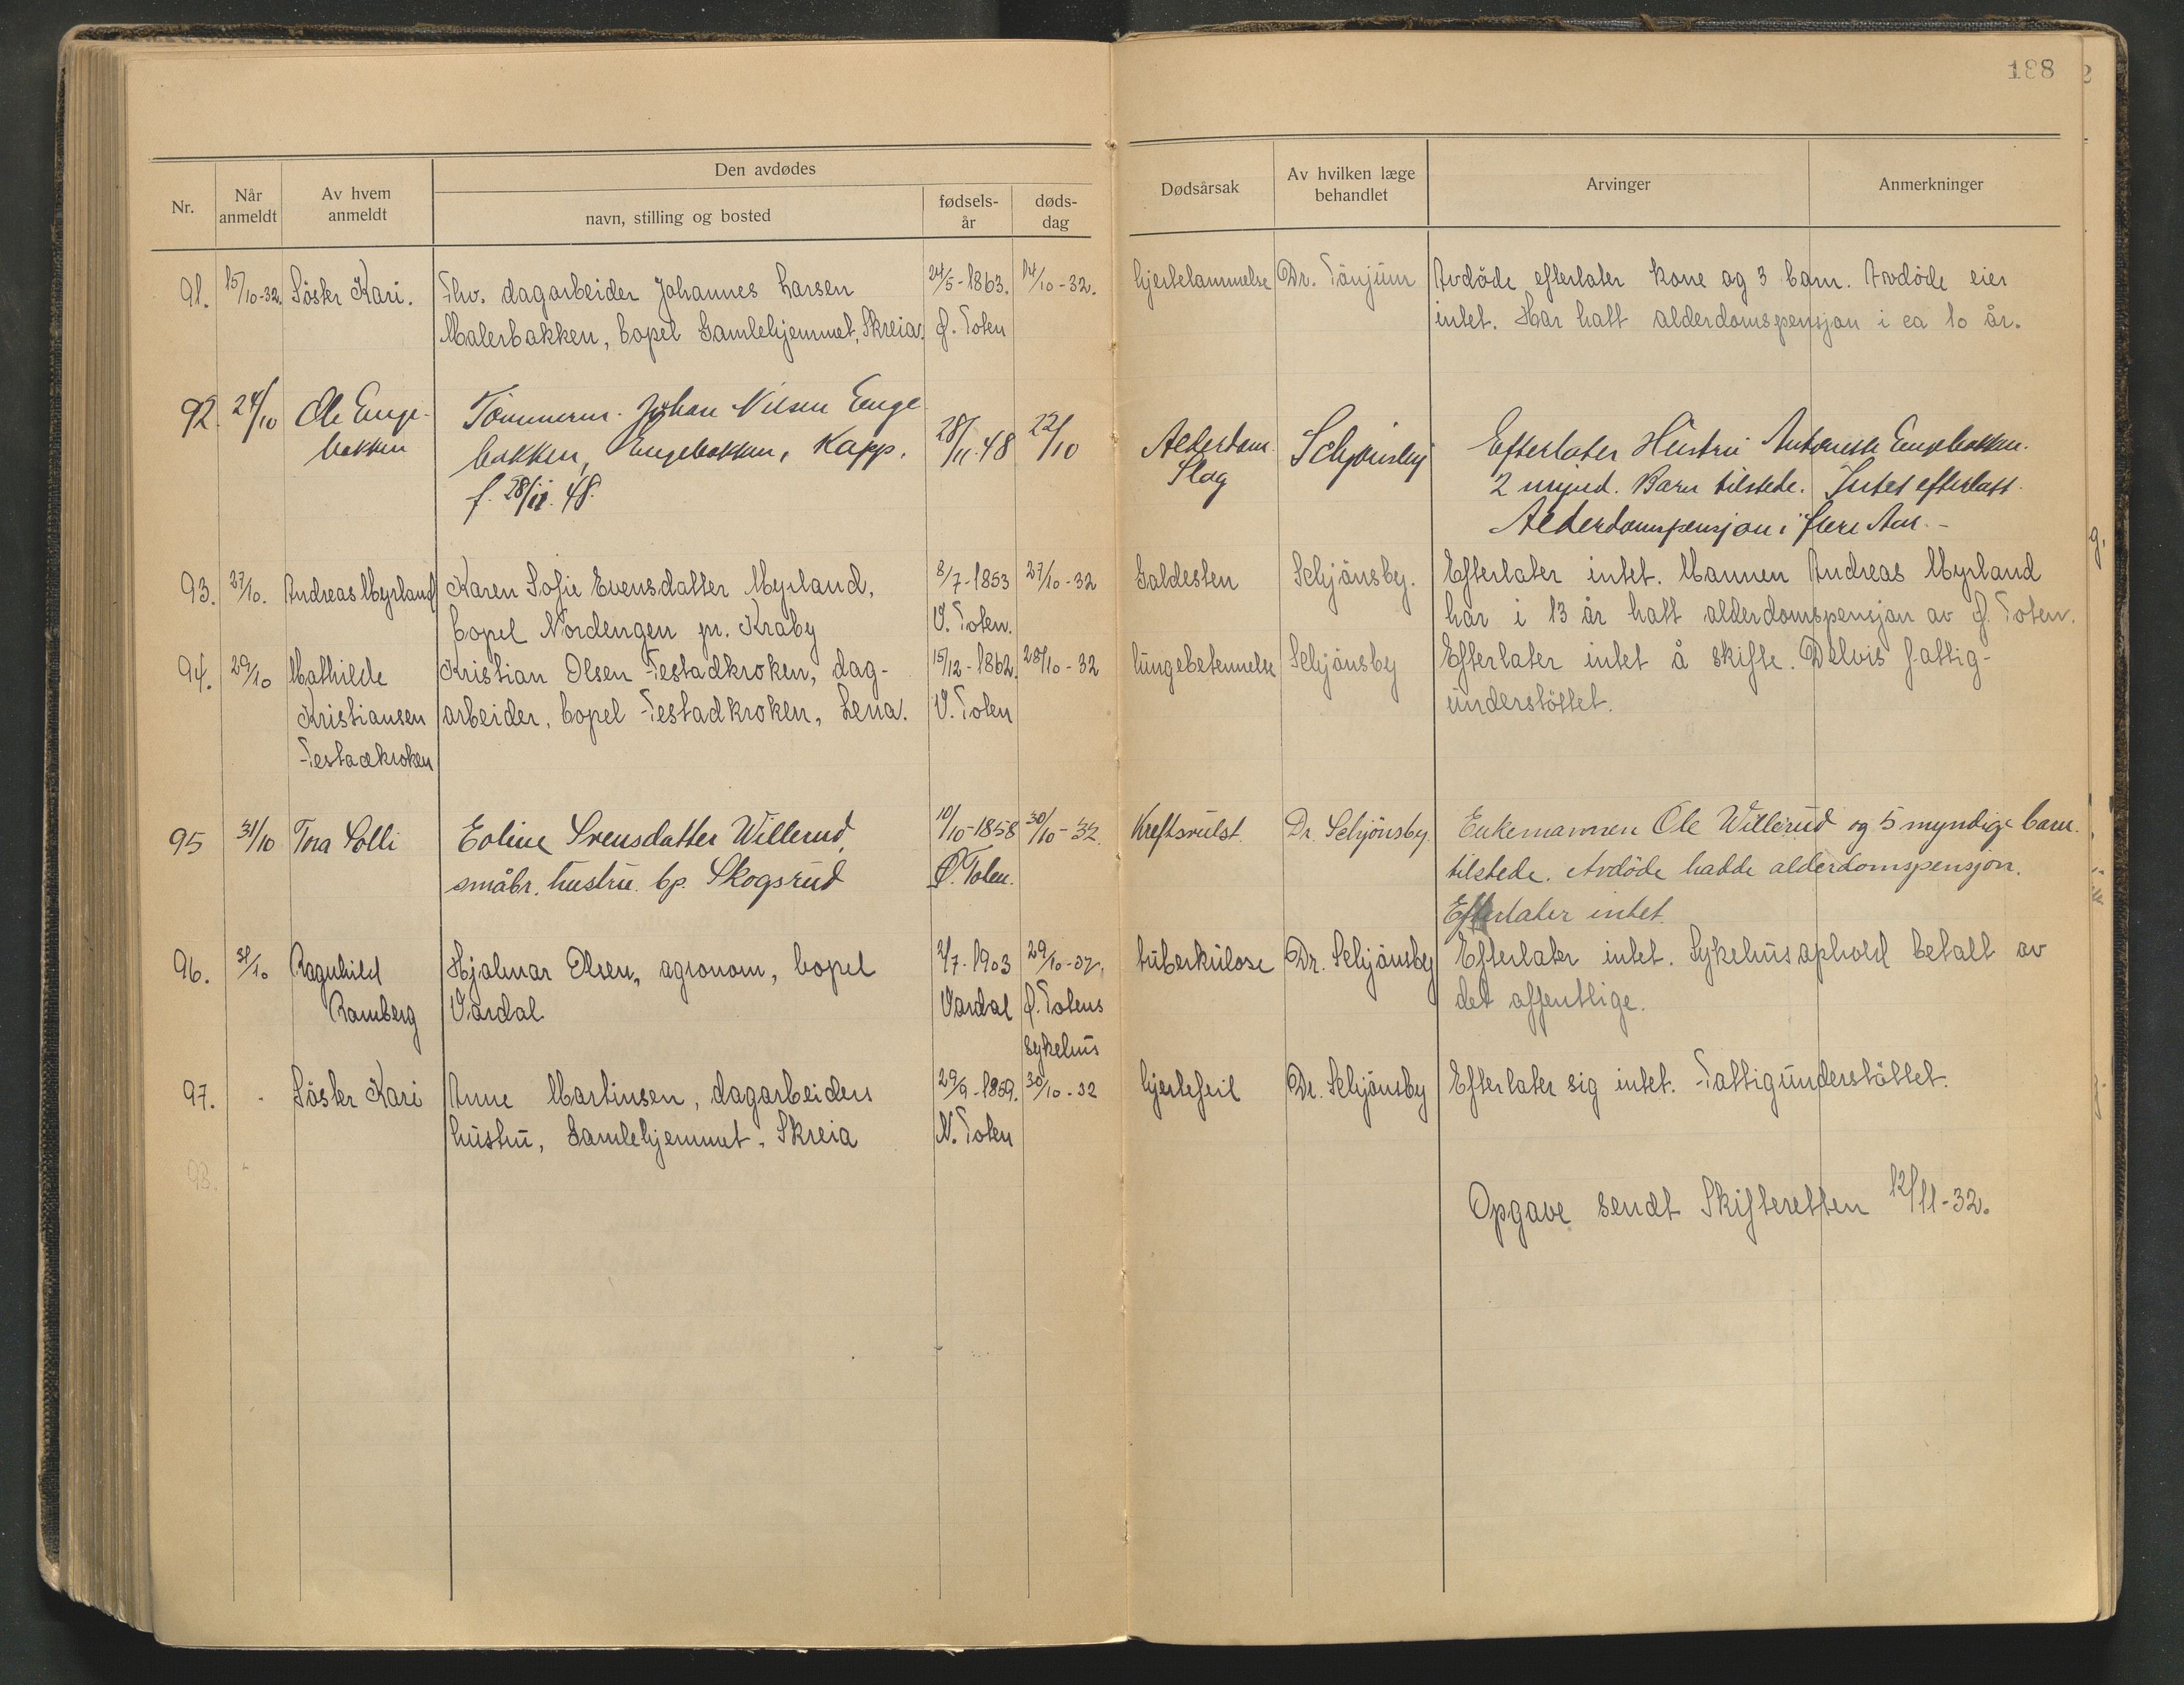 188
Nr.
Når anmeldt
Av hvem anmeldt
Den avdødes
navn, stilling og bosted
fødsels-år
døds-dag
Dødsårsak
Av hvilken læge behandlet
Arvinger
Anmerkninger
91. 15/10-32. Söster Kari. Fhv. dagarbeider Johannes Larsen 24/5-1863. 14/10-32. hjertelammelse Dr. Tönjum Avdöde efterlater kone og 3 barn. Avdöde eier
Malerbakken, bopel Gamlehjemmet, Skreia. Ø. Toten intet. Har hatt alderdomspensjon i ca 10 år.
92. 24/10 Ole Enge- Tömmerm. Johan Nilsen Enge
bakken bakken, Engebakken, Kapp. 28/11.48 22/10 Alderdom. Schjönsby Efterlater Hustru Antonette Engebakken.
f. 28/11.48. Slag 2 mynd. Barn tilstede. Intet efterlatt.
Alderdomspensjon i flere Aar. -
93. 27/10. Andreas Myrland Karen Sofie Evensdatter Myrland, 8/7-1853 27/10-32 Galdesten Schjönsby. Efterlater intet. Mannen Andreas Myrland
bopel Nordengen pr. Kraby V. Toten. har i 13 år hatt alderdomspensjon av Ø. Toten.
94. 29/10 Mathilde Kristian Olsen Festadkroken, dag- 15/12-1862. 28/10-32 lungebetennelse Schjönsby Efterlater intet å skifte. Delvis fattig-
Kristiansen arbeider, bopel Festadkroken, Lena. V. Toten understöttet.
Festadkroken
95 31/10 Tora Solli Eoline Svensdatter Willerud, 10/10-1858 30/10-32. Kreftsvulst. Dr. Schjönsby. Enkemannen Ole Willerud og 5 myndige barn.
småbr. hustru. bp. Skogsrud Ø. Toten. tilstede. Avdöde hadde alderdomspensjon.
Efterlater intet.
96. 31/10 Ragnhild Hjalmar Olsen, agronom, bopel 2/7-1903 29/10-32, tuberkulose Dr. Schjönsby Efterlater intet. Sykehusophold betalt av
Ramberg Vardal Vardal Ø. Totens det offentlige.
sykehus
97. - Söster Kari Anne Martinsen, dagarbeiders 29/9-1859. 30/10-32 hjertefeil Dr. Schjönsby Efterlater sig intet. Fattigunderstöttet.
hustru, Gamlehjemmet, Skreia N. Toten
98. -
Opgave sendt Skifteretten 12/11-32.